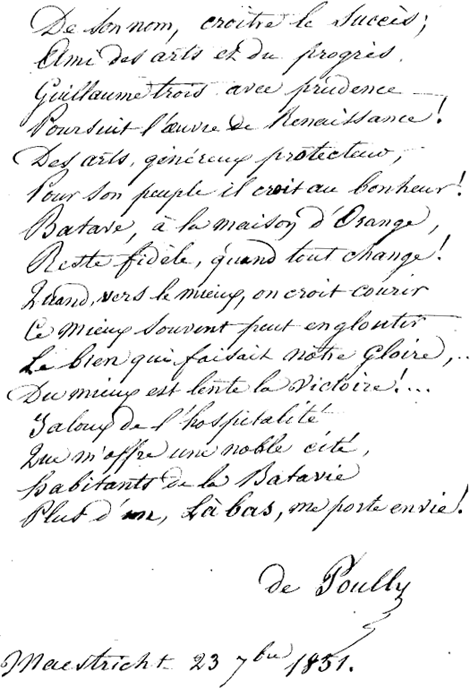 De son nom, croître le succès;
Ami des arts et du progrès.
Guillaume trois avec prudence
Poursuit l'œuvre de Renaissance!
Des arts, généreux protecteur,
Pour son peuple il croit au bonheur!
Batave, à la maison d'Orange,
Reste fidèle, quand tout change!
Quand, vers le mieux, on croit courir
Ce mieux souvent peut engloutir
Le bien qui faisait notre Gloire,..
Du mieux est lente la victoire!...
Jaloux de l'hospitalité
Que m'offre une noble cité,
habitants de la Batavie
Plus d'un, Là bas, me porte envie!
de Poully
Maestricht 23 7bre 1851.